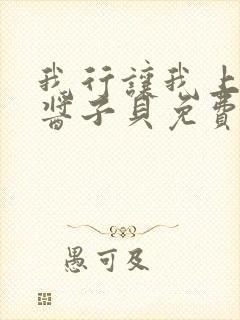 我行讓我上
醬子貝免費
愚可及